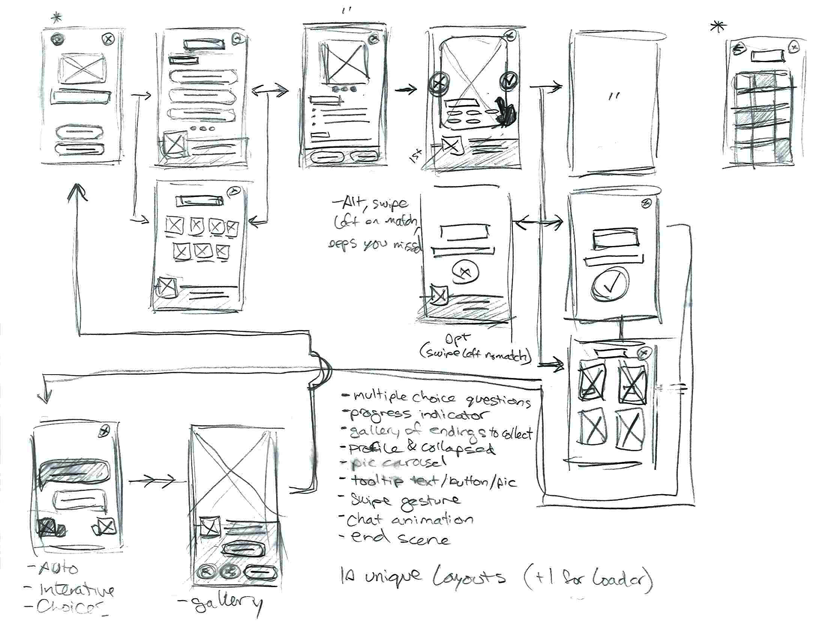 15x
- Alt, swipe
left on match,
oops you missed
Opt
(swipe left mismatch)
- multiple choice questions
- progress indicator
- gallery of endings to collect
- profile & collapsed
- pic carousel
- tooltip text/button/pic
- Swipe gesture
- Chat animation
- end scene
- Auto
- Interative
- Choices
- gallery
10 unique Layouts (+1 for Loader)